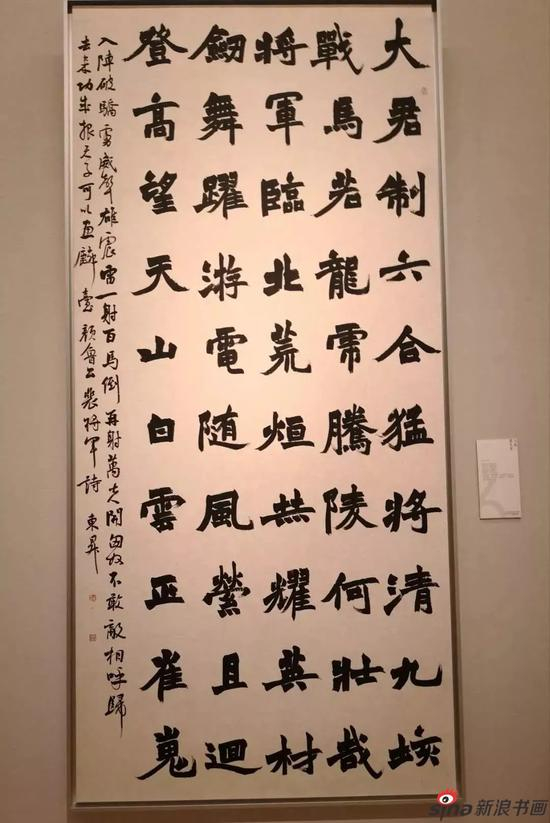 大君制六合猛将清九垓
戰馬若龍虎騰陵何壯哉
将軍臨北荒烜赫耀英材
劒舞躍游電随風縈且迴
登高望天山白雲正崔嵬
入陣破驕虜威聲雄震雷一射百馬倒再射萬夫開匈奴不敢敵相呼歸
去来功成報天子可以画麟臺 顔魯公裴将軍詩 東昇
sina新浪书画